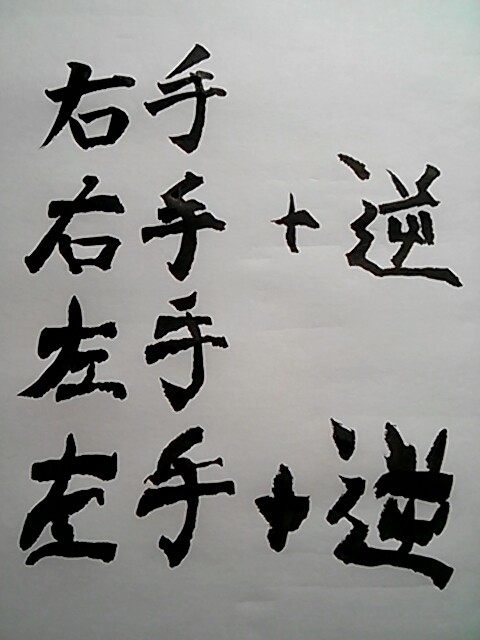 右手
右手+逆
左手
左手+逆